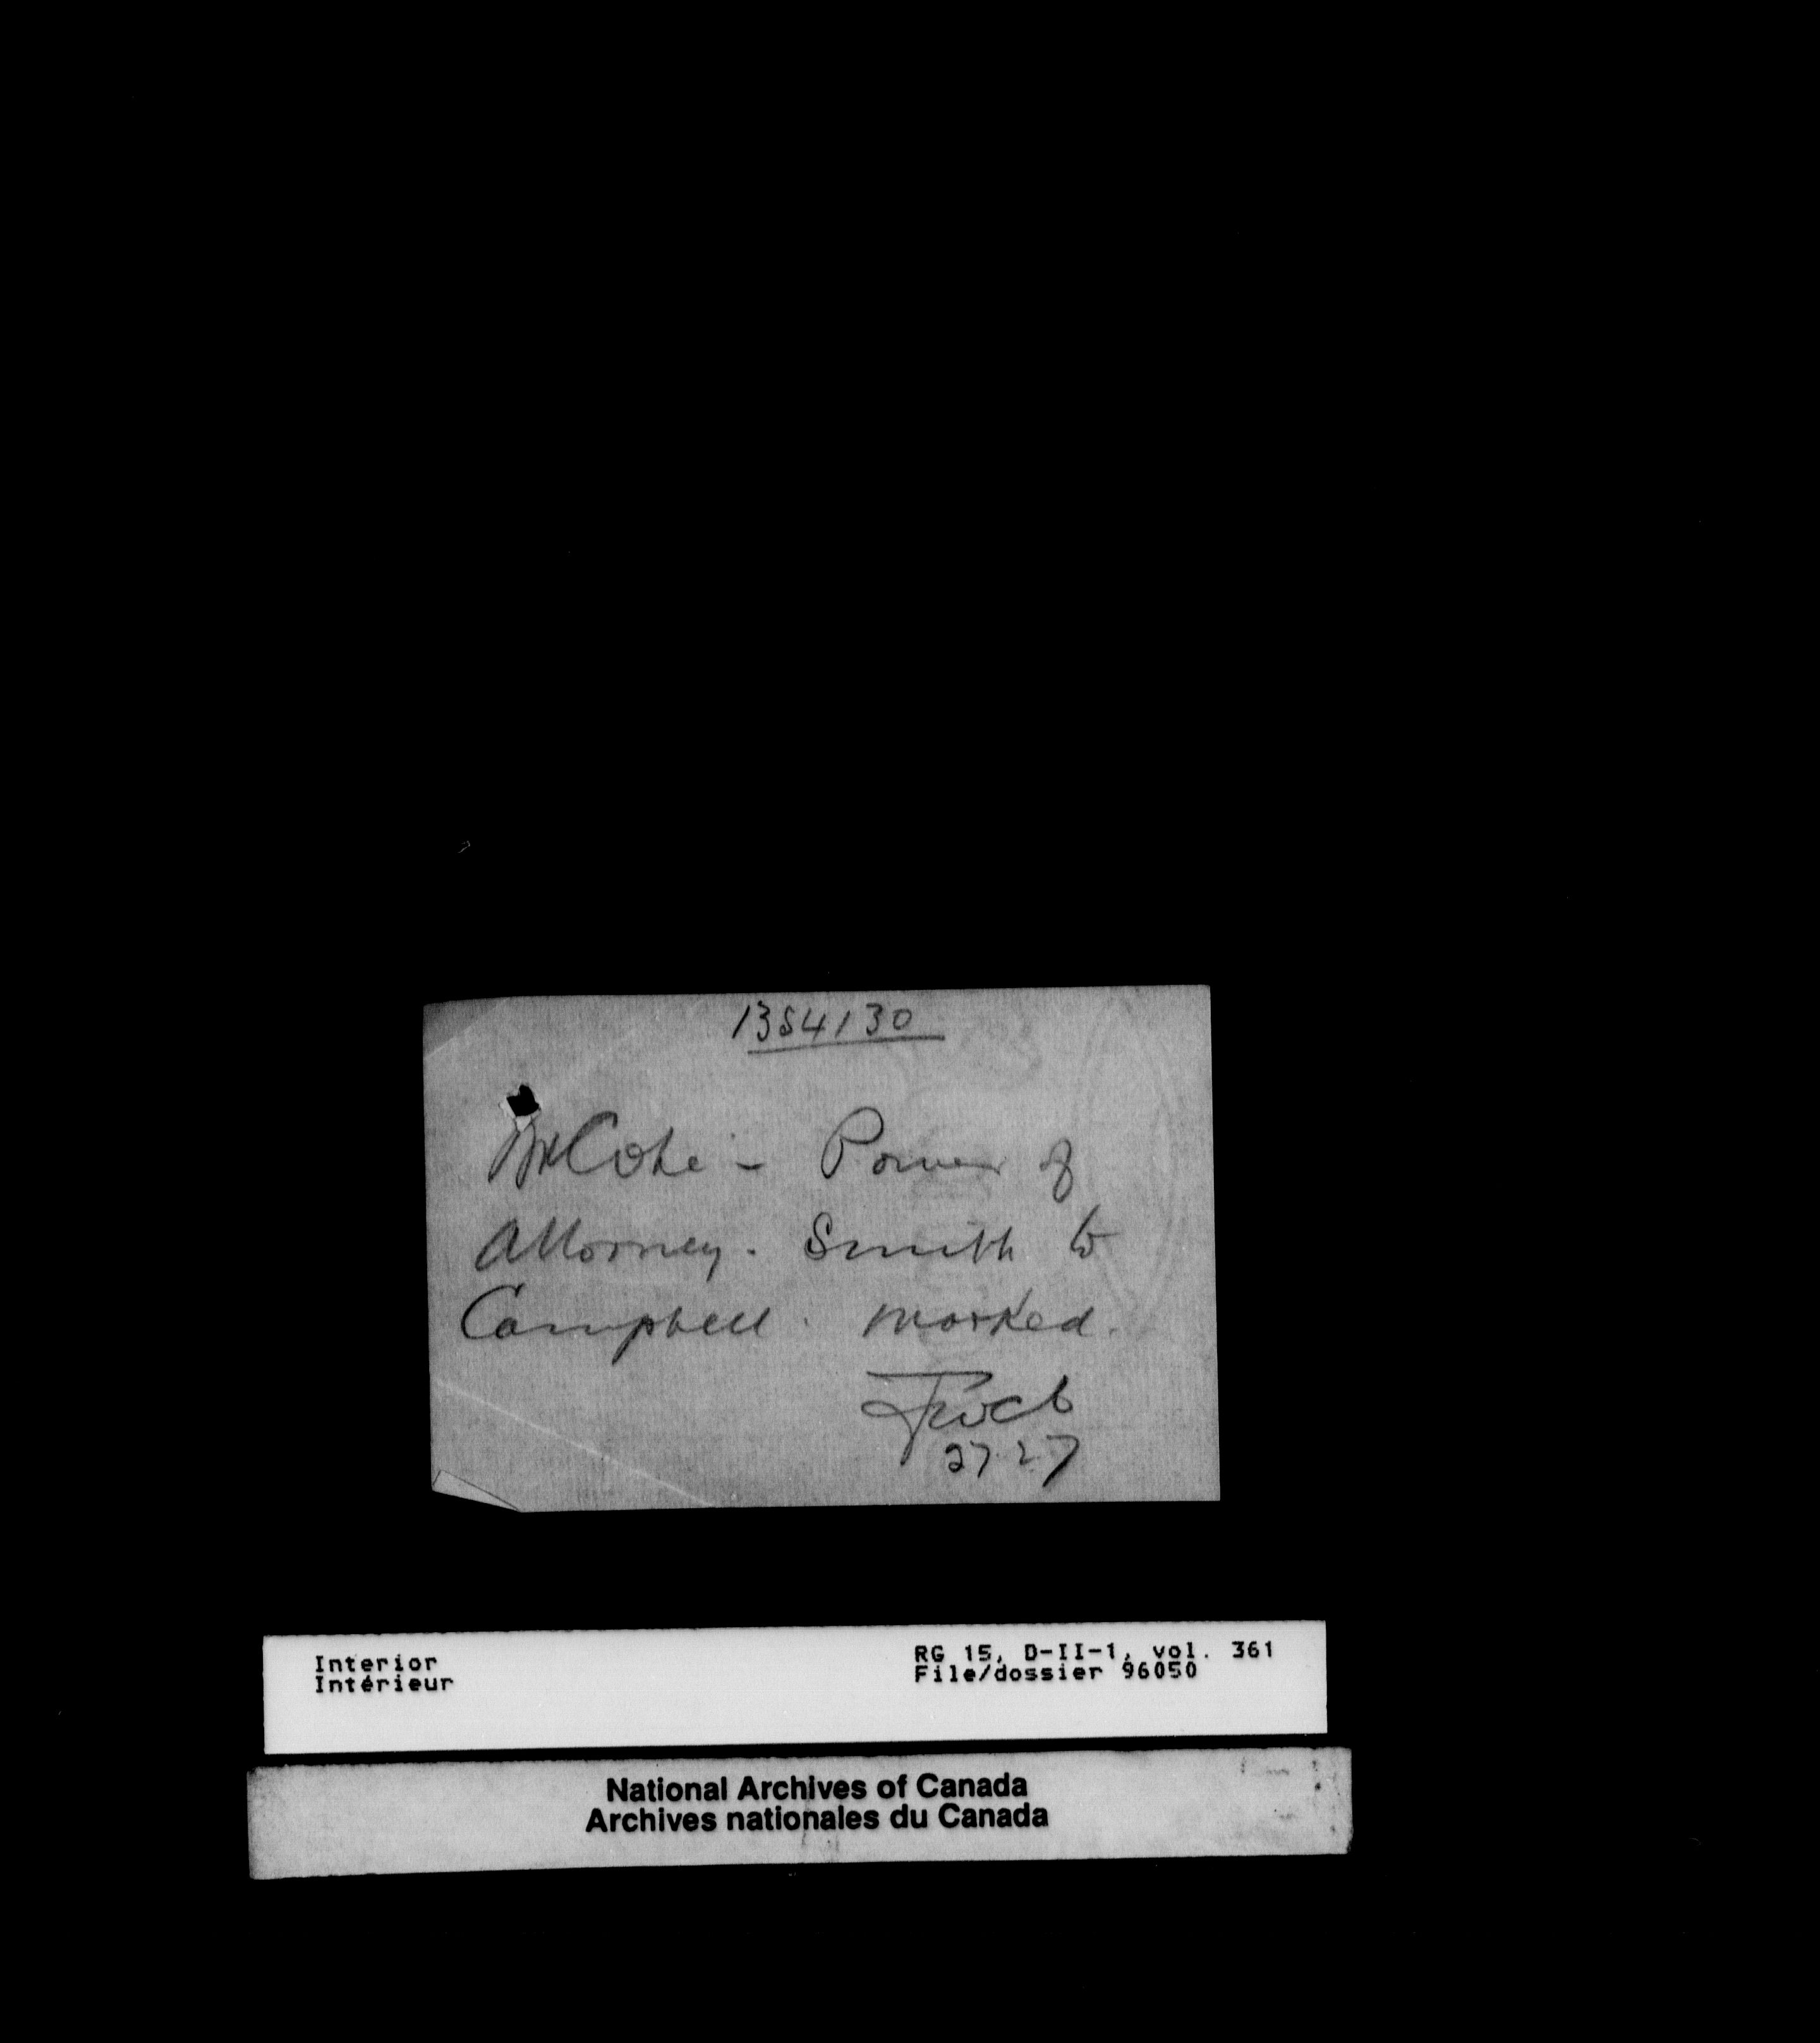 1354130
Mr Cote - Power of
Attorney. Smith to
Campbell. marked.
27.2.7
Interior
Intérieur
RG 15, D-II-1, vol. 361
File/dossier 96050
National Archives of Canada
Archives nationales du Canada